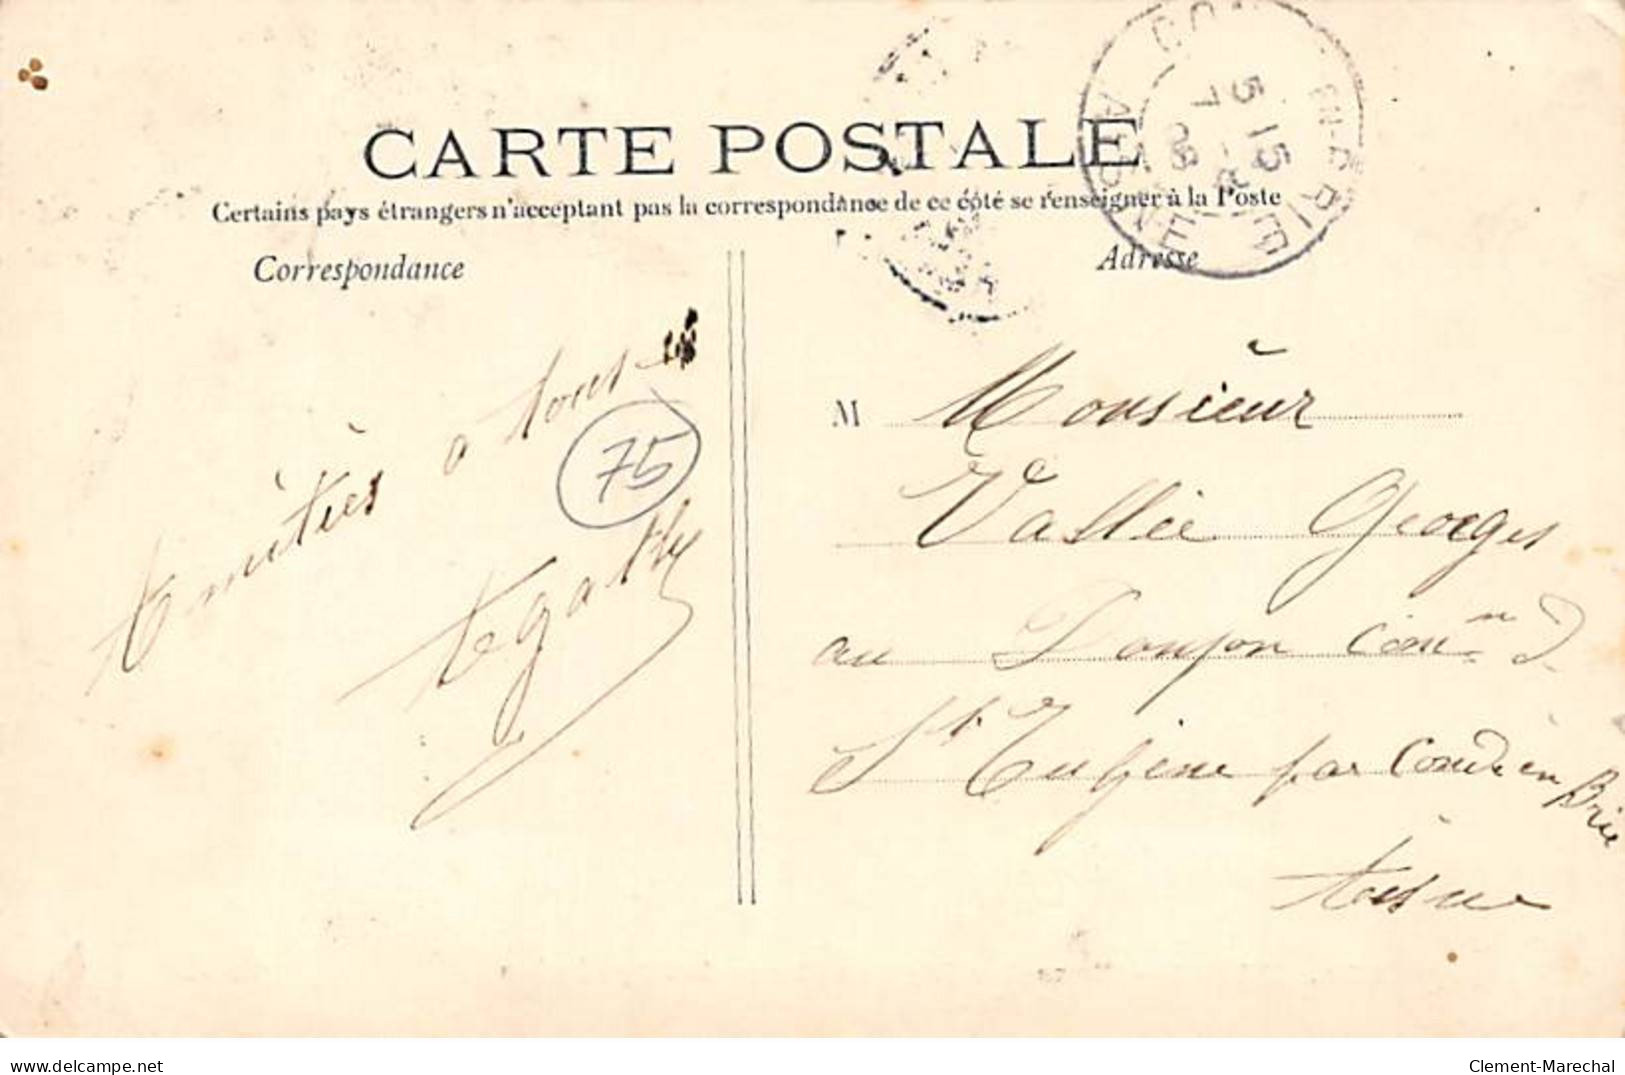 CARTE POSTALE
Certains pays étrangers n'acceptant pas la correspondance de ce côté se renseigner à la Poste
Correspondance
Adresse
Amitiés a tous
75
Agathe
M Monsieur
Vallée Georges
au Donjon Com.ne d.
St Eugène par Condé en Brie
Aisne
EN-BRIE
AISNE
5 15
7
08
delcampe.net
Clement-Marechal